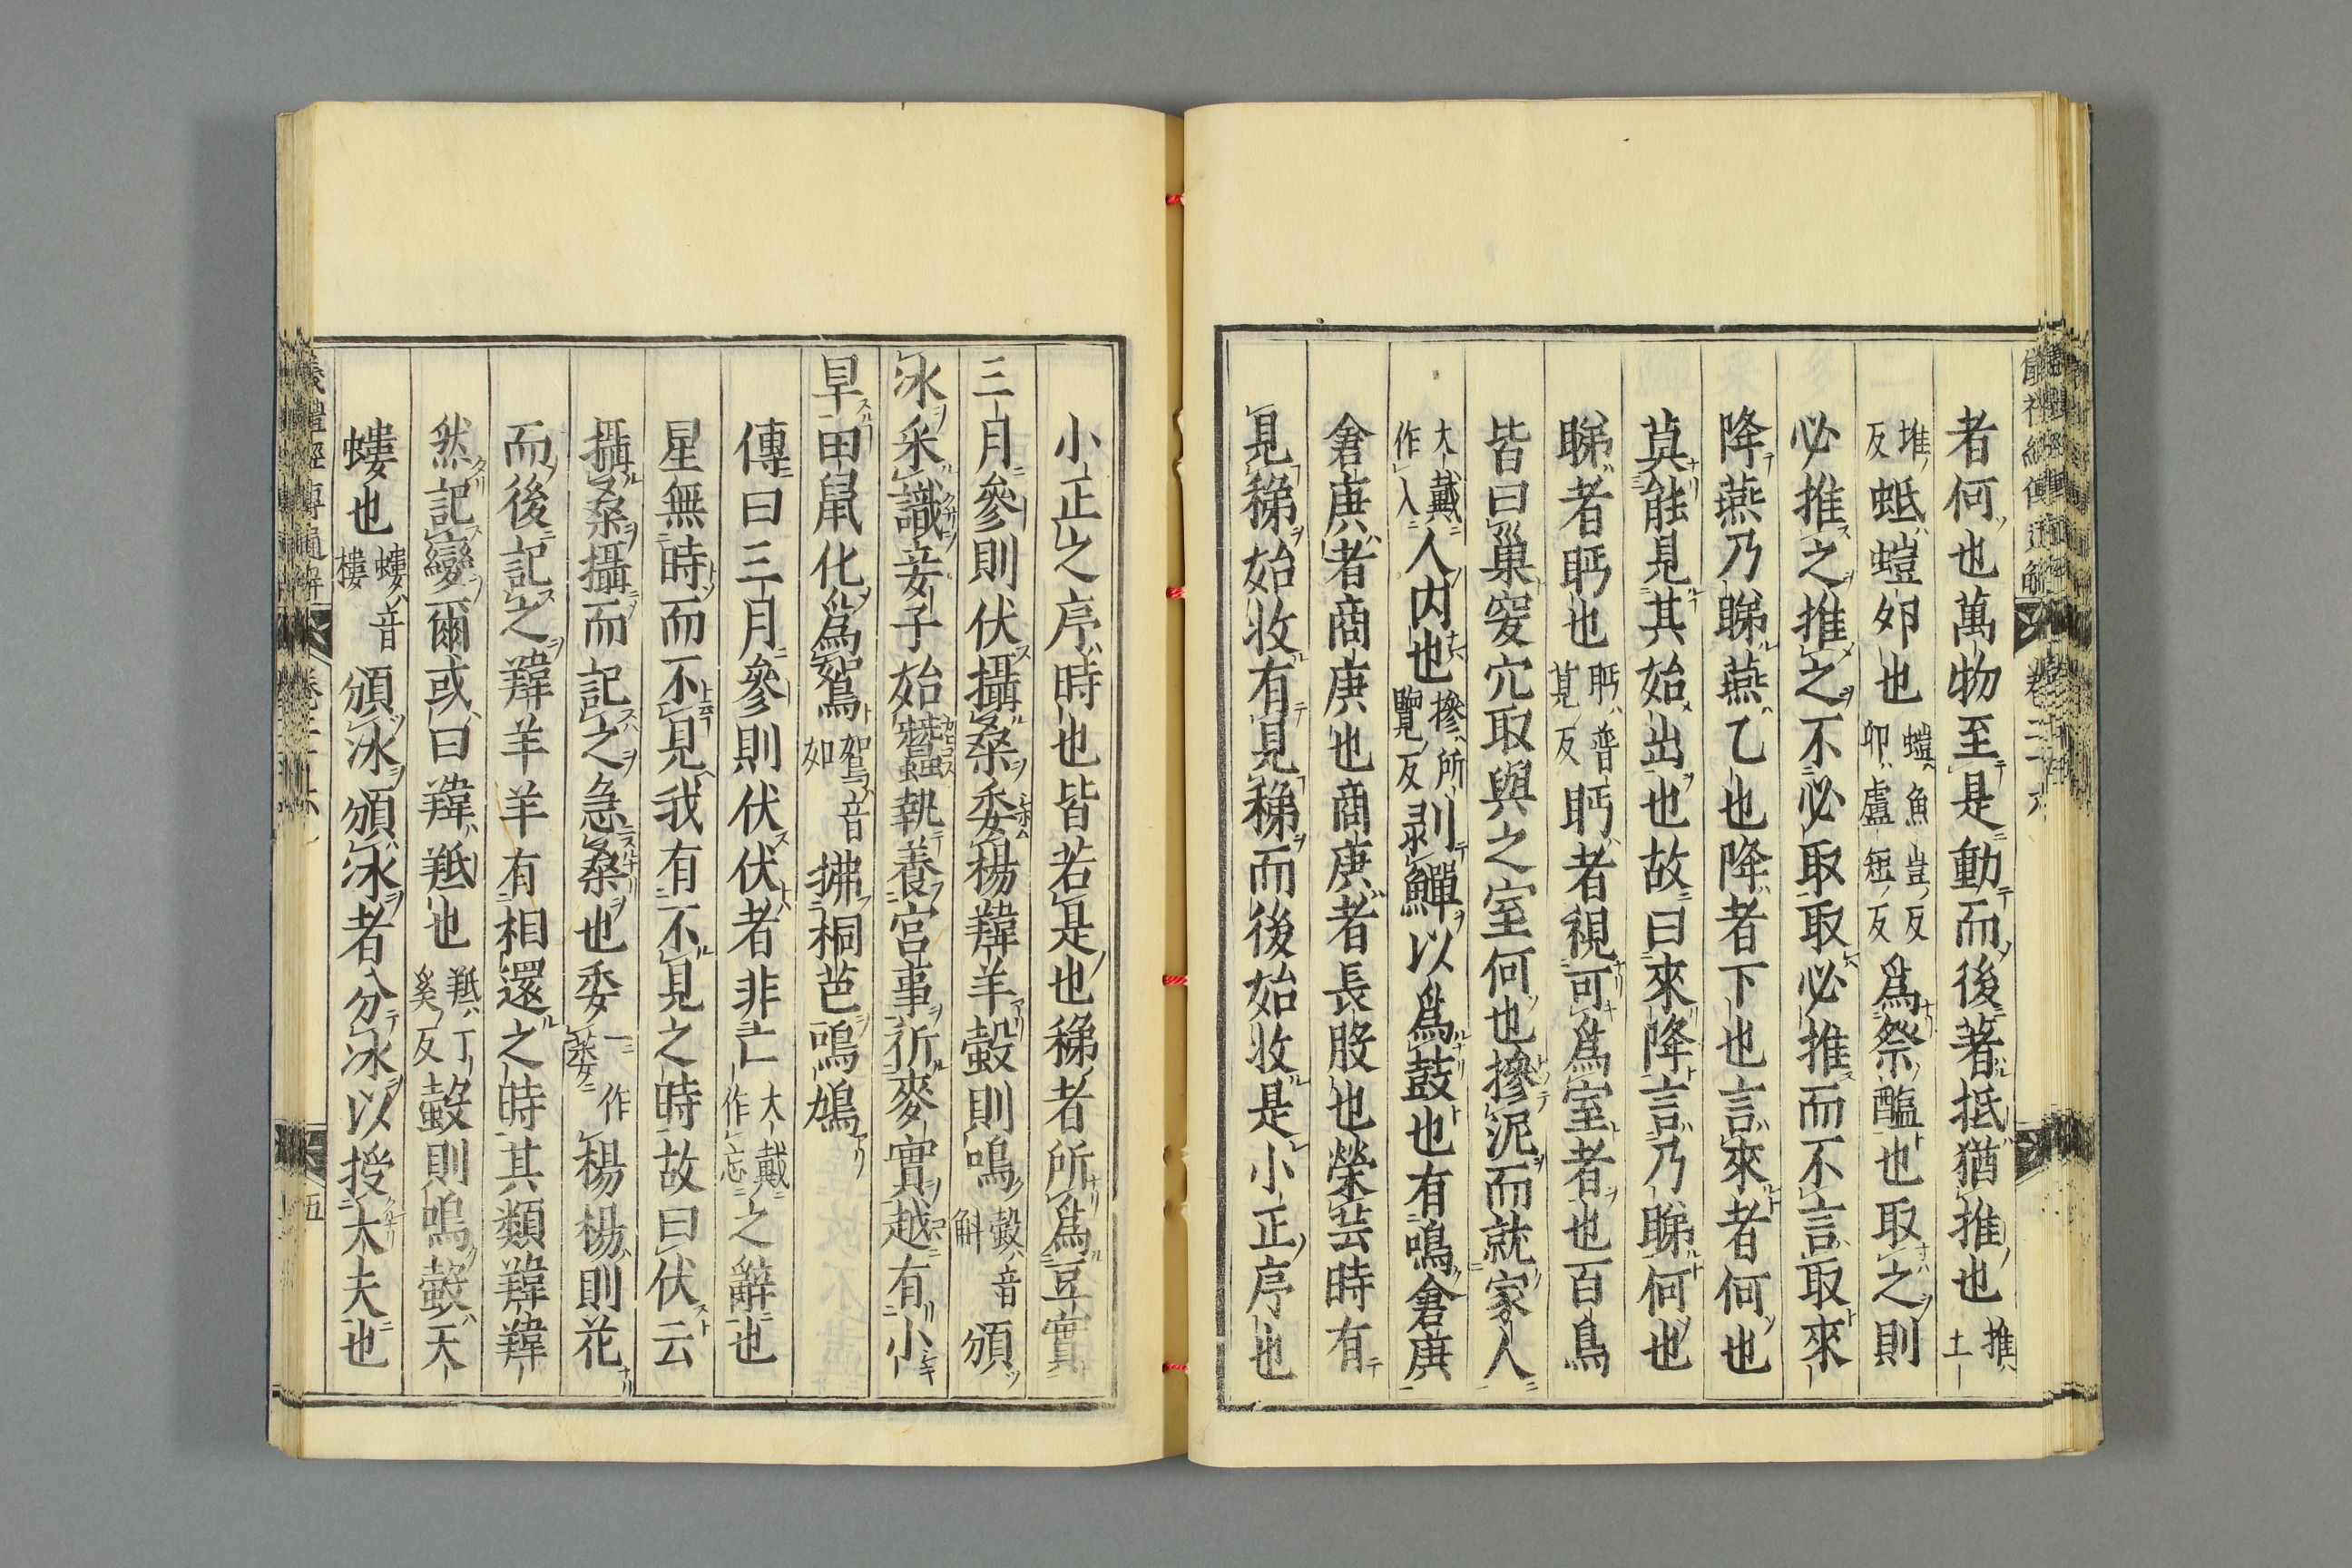 者何也萬物至是動而後著抵猶推也推土
堆反蚳螘卵也螘魚豈反卵盧短反爲祭醢也取之則
必推之推之不必取取必推而不言取來
降燕乃睇燕乙也降者下也言來者何也
莫能見其始出也故曰來降言乃睇何也
睇者眄也眄普莧反眄者視可爲室者也百鳥
皆曰巢穾穴取與之室何也摻泥而就家人
大戴作入人内也摻所覽反剥鱓以爲鼓也有鳴倉庚
倉庚者商庚也商庚者長股也榮芸時有
見稊始收有見稊而後始收是小正序也
小正之序時也皆若是也稊者所爲豆實
三月參則伏攝桑委楊羍羊螜則鳴螜音斛頒
冰采識妾子始蠶執養宮事祈麥實越有小
旱田鼠化爲鴽鴽音如拂桐芭鳴鳩
傳曰三月參則伏伏者非亡大戴作忘之辭也
星無時而不見我有不見之時故曰伏云
攝桑攝而記之急桑也委一作萎楊楊則花
而後記之羍羊羊有相還之時其類羍羍
然記變爾或曰羍羝也羝丁奚反螜則鳴螜天
螻也螻音樓頒冰頒冰者分冰以授大夫也